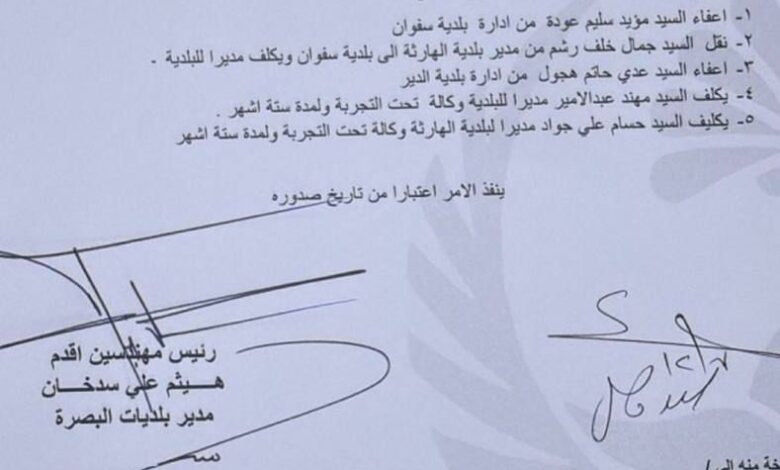 ١- اعفاء السيد مؤيد سليم عودة من ادارة بلدية سفوان
٢- نقل السيد جمال خلف رشم من مدير بلدية الهارثة الى بلدية سفوان ويكلف مديرا للبلدية .
٣- اعفاء السيد عدي حاتم هجول من ادارة بلدية الدير
٤- يكلف السيد مهند عبدالامير مديرا للبلدية وكالة تحت التجربة ولمدة ستة اشهر .
٥- يكليف السيد حسام علي جواد مديرا لبلدية الهارثة وكالة تحت التجربة ولمدة ستة اشهر
ينفذ الامر اعتبارا من تاريخ صدوره
رئيس مهندسين اقدم
هيثم علي سدخان
مدير بلديات البصرة
منه الى /